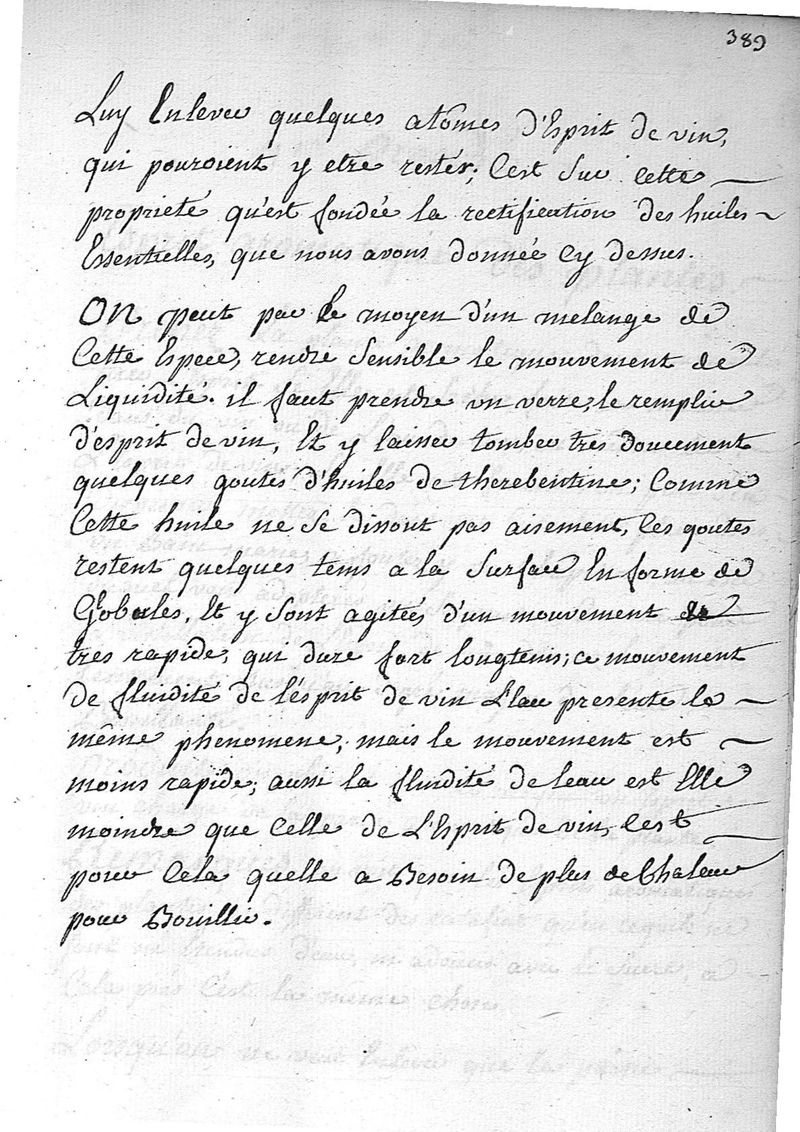 389
Luy Enlever quelques atômes d'Esprit de vin,
qui pouroient y etre restés; C'est Sur cette
proprieté qu'est fondée la rectification des huiles
Essentielles, que nous avons donnée Cy dessus.
On peut par le moyen d'un melange de
Cette Espece, rendre Sensible le mouvement de
Liquidité. il faut prendre un verre, le remplir
d'esprit de vin, Et y laisser tomber tres doucement
quelques goutes d'huiles de therebentine; Comme
Cette huile ne Se dissout pas aisement, Ces goutes
restent quelques tems a la Surface En forme de
Globules, Et y Sont agitées d'un mouvement
tres rapide, qui dure fort longtems; ce mouvement
de fluidité de l'ésprit de vin L'eau presente le
même phenomene, mais le mouvement est
moins rapide, aussi la fluidité de leau est Elle
moindre que Celle de L'Esprit de vin, C'est
pour Cela quelle a Besoin de plus de Chaleur
pour Bouillir.